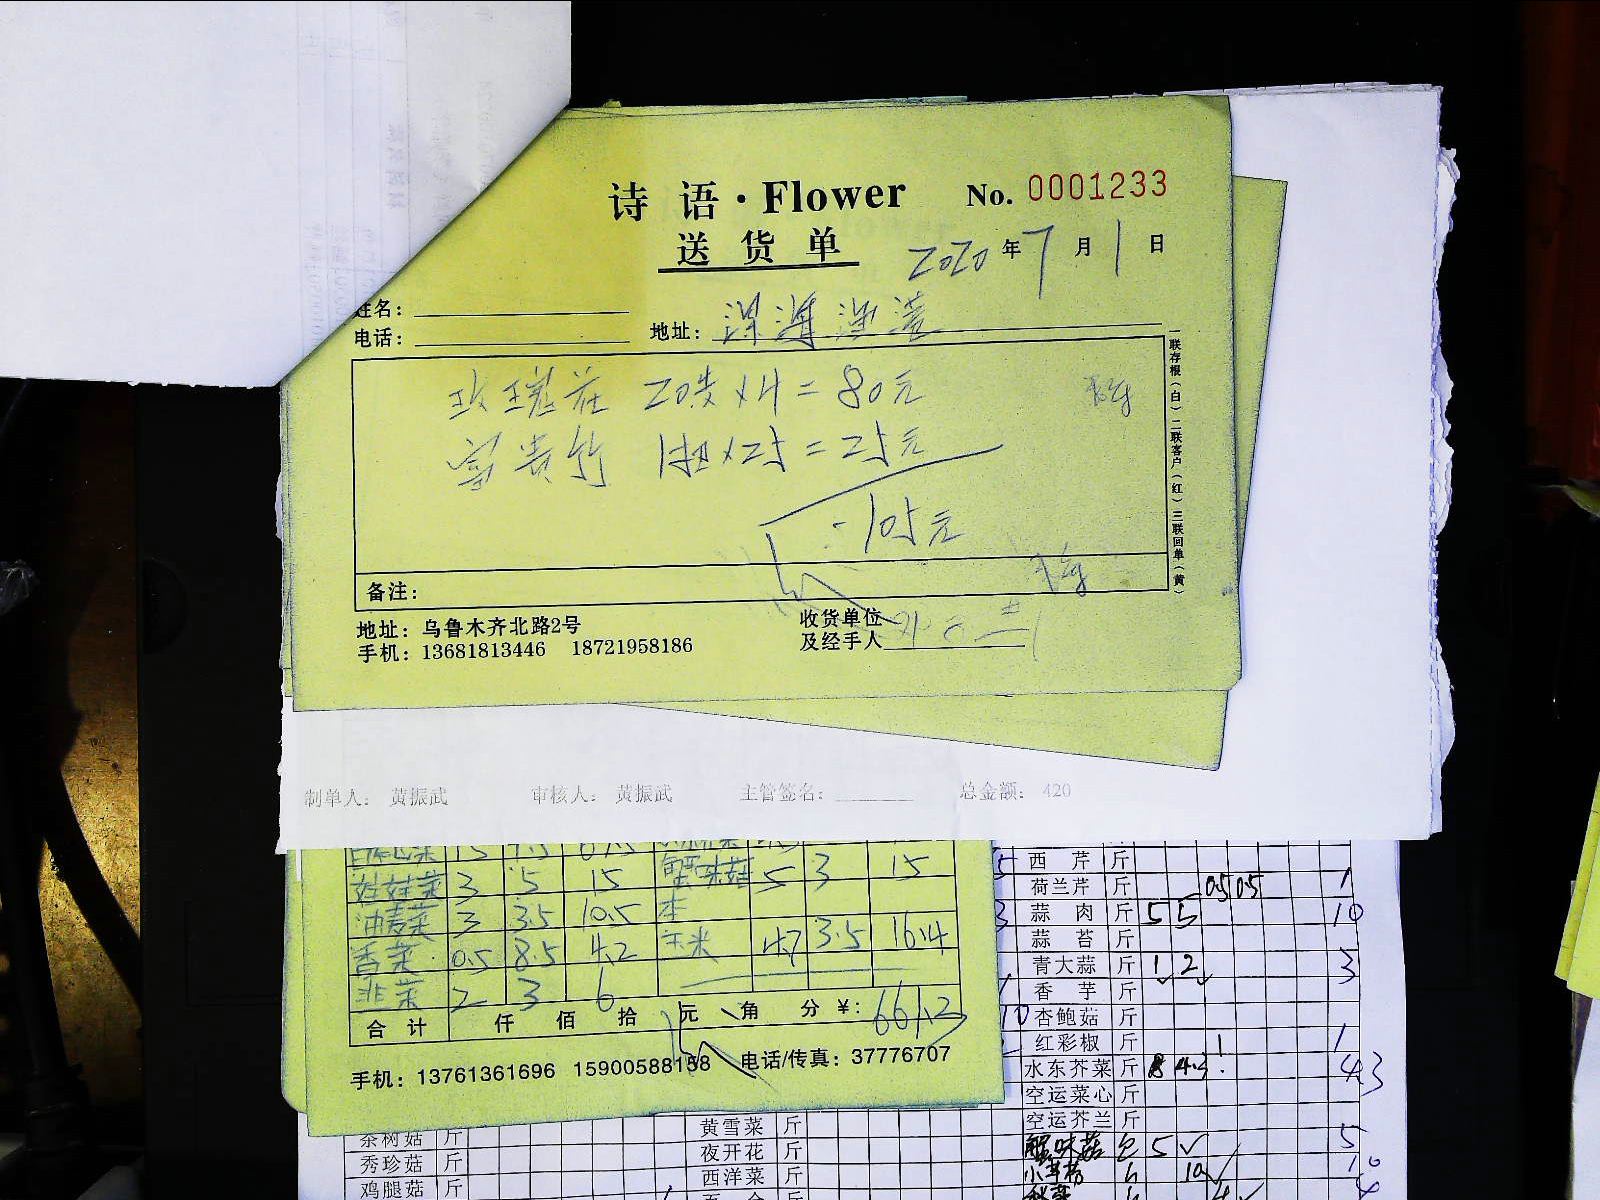 诗 语 · Flower No. 0001233
送 货 单 2020 年 7 月 1 日
姓名：
电话： 地址：
玫瑰花 20支×4=80元
富贵竹 1扎×25=25元
105元
备注：
地址：乌鲁木齐北路2号 收货单位
手机：13681813446 18721958186 及经手人
一联存根（白）二联客户（红）三联回单（黄）
制单人： 黄振武 审核人： 黄振武 主管签名： 总金额： 420
娃娃菜 3 5 15 蟹味菇 5 3 15
油麦菜 3 3.5 10.5
香菜 0.5 8.5 4.2 玉米 4.7 3.5 16.4
韭菜 2 3 6
合 计 仟 佰 拾 元 角 分 ¥: 661.2
手机：13761361696 15900588158 电话/传真：37776707
西 芹 斤
荷兰芹 斤 0.5 0.5 1
蒜 肉 斤 5 5 10
蒜 苔 斤
青大蒜 斤 1 2 3
香 芋 斤
杏鲍菇 斤
红彩椒 斤 1 1
水东芥菜 斤 8 4.3 43
空运菜心 斤
空运芥兰 斤
蟹味菇 包 5 5
茶树菇 斤 黄雪菜 斤
秀珍菇 斤 夜开花 斤
鸡腿菇 斤 西洋菜 斤